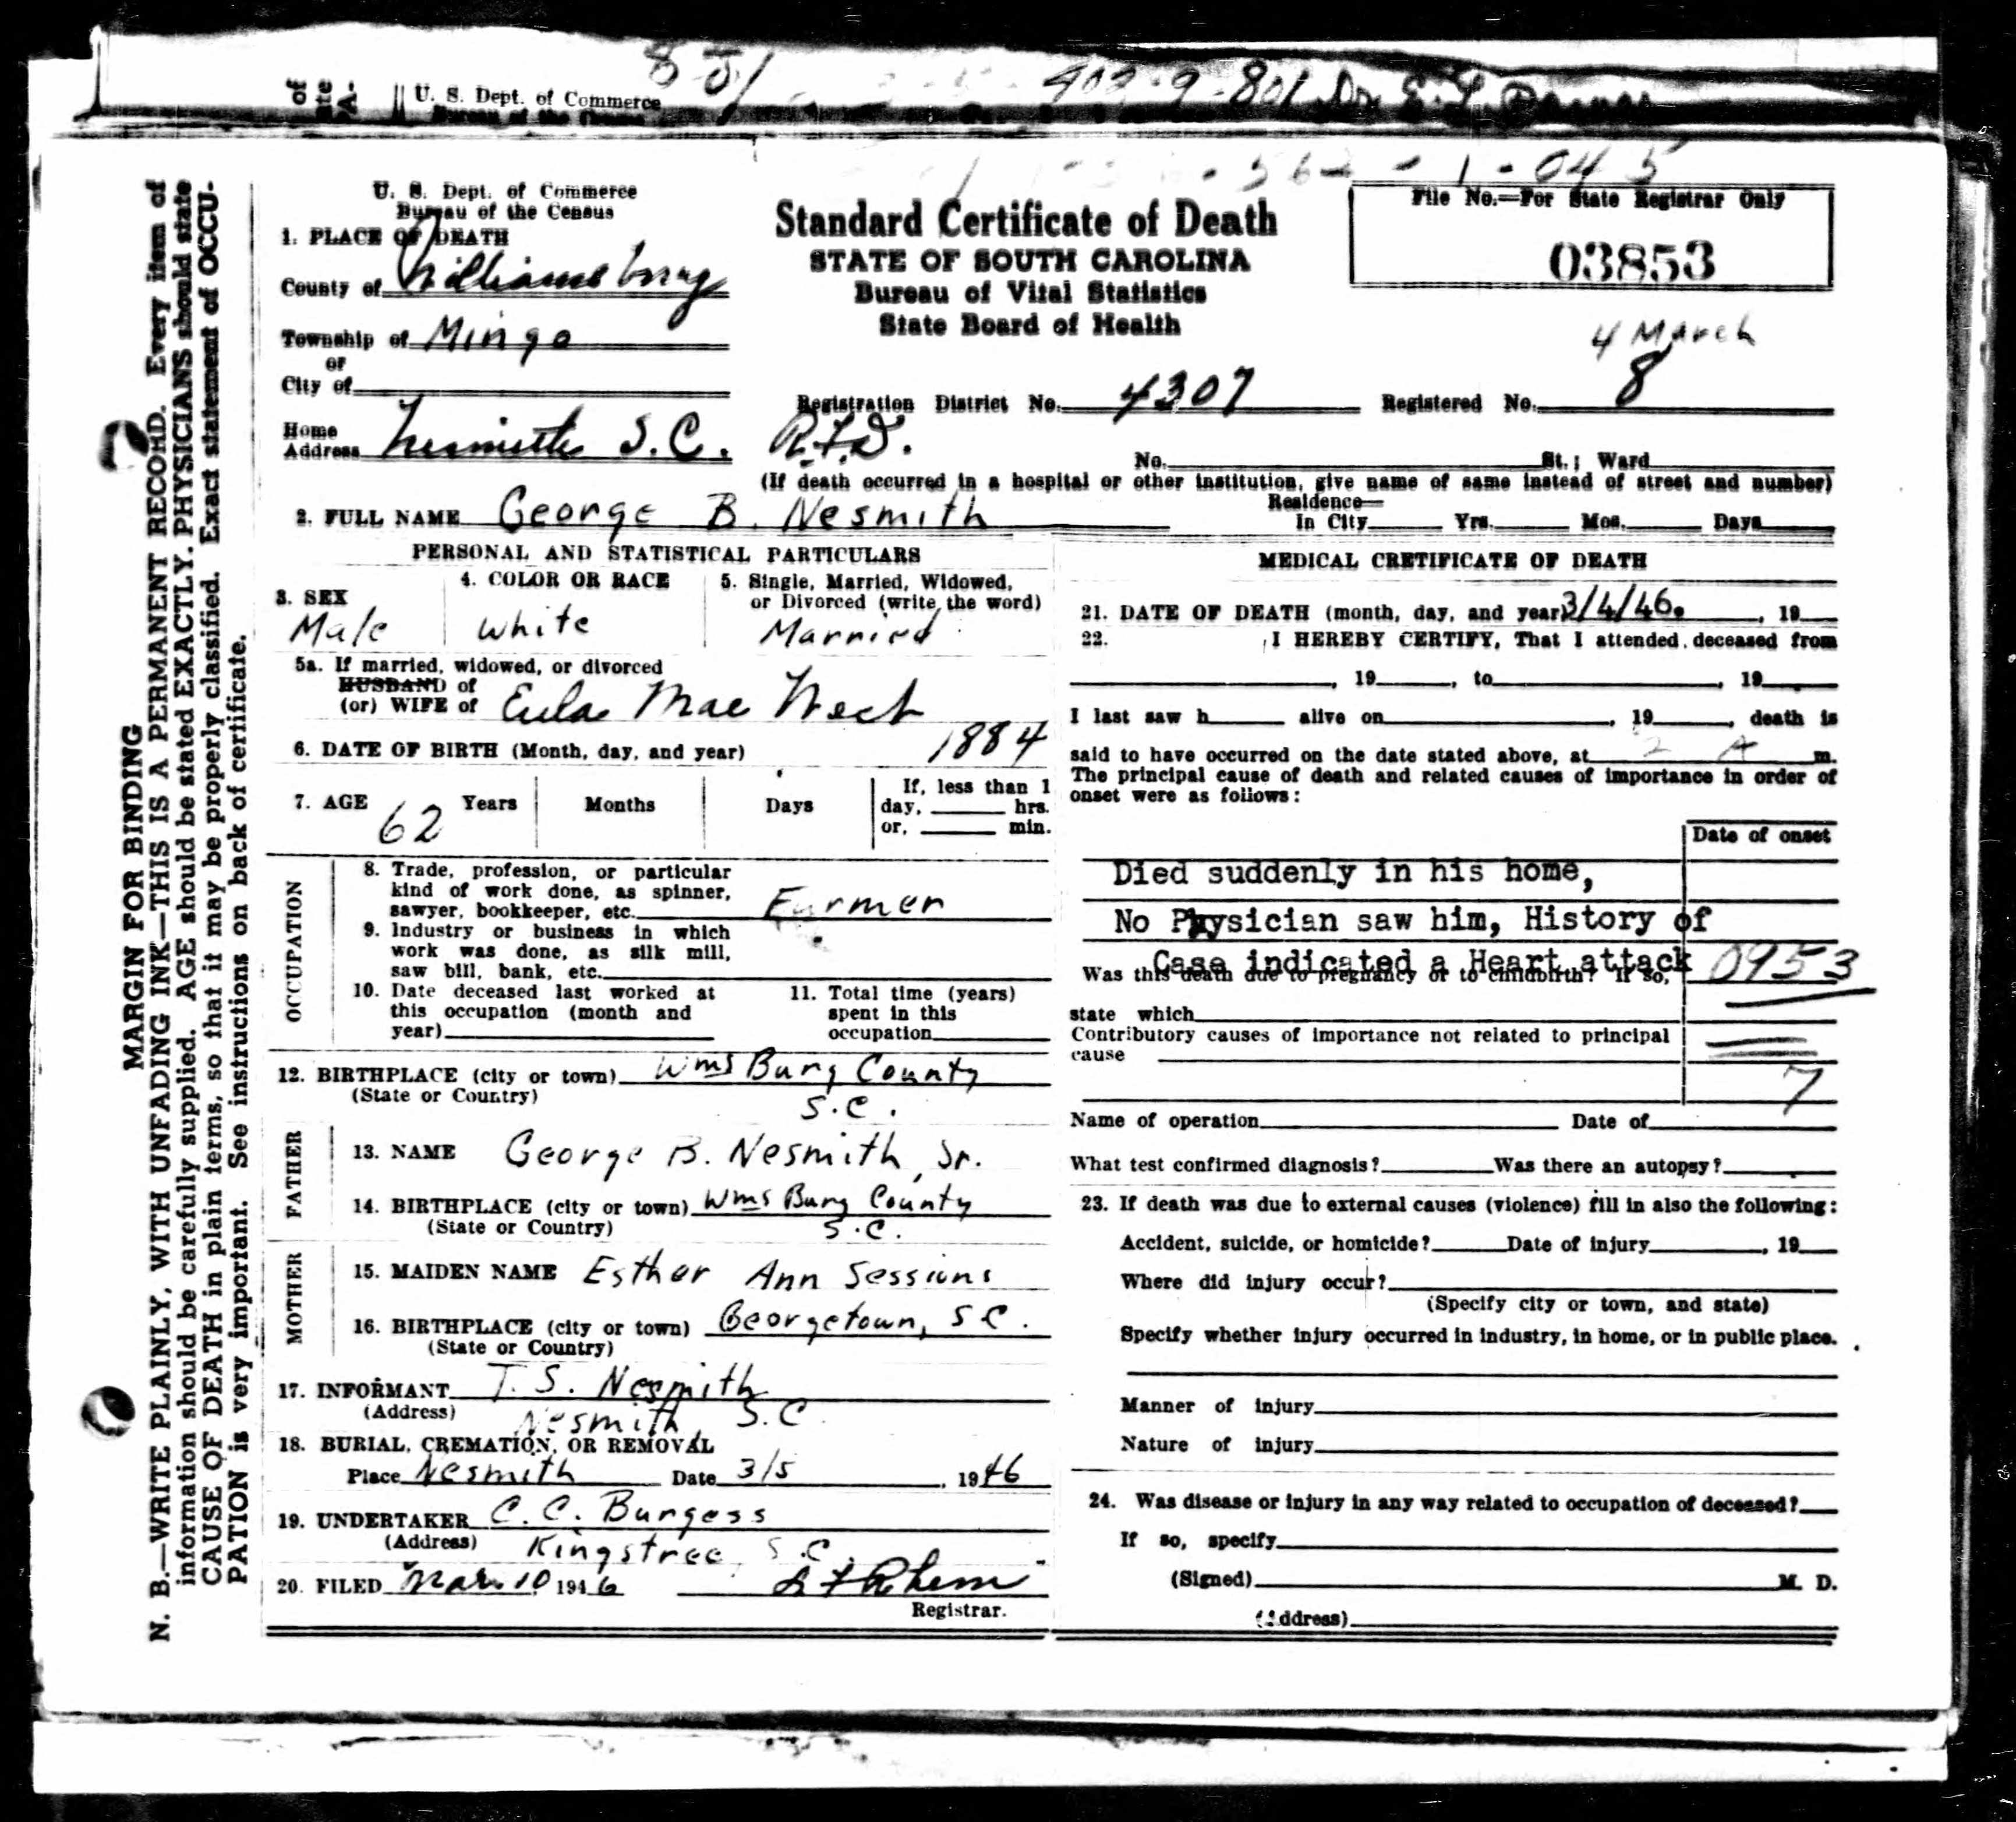 U. S. Dept. of Commerce
of
U. S. Dept. of Commerce
Bureau of the Census
Standard Certificate of Death
STATE OF SOUTH CAROLINA
Bureau of Vital Statistics
State Board of Health
File No.—For State Registrar Only
03853
4 March
1. PLACE OF DEATH
County of Williamsburg
Township of Mingo
or
City of
Registration District No. 4307 Registered No. 8
Home
Address Nesmith S.C. R.F.D.
No. St.; Ward
(If death occurred in a hospital or other institution, give name of same instead of street and number)
2. FULL NAME George B. Nesmith
Residence—
In City Yrs. Mos. Days
PERSONAL AND STATISTICAL PARTICULARS
3. SEX
Male
4. COLOR OR RACE
White
5. Single, Married, Widowed,
or Divorced (write the word)
Married
5a. If married, widowed, or divorced
HUSBAND of
(or) WIFE of Eula Mae West
6. DATE OF BIRTH (Month, day, and year) 1884
7. AGE 62 Years Months Days
If, less than 1
day, hrs.
or, min.
OCCUPATION
8. Trade, profession, or particular
kind of work done, as spinner,
sawyer, bookkeeper, etc. Farmer
9. Industry or business in which
work was done, as silk mill,
saw bill, bank, etc.
10. Date deceased last worked at
this occupation (month and
year)
11. Total time (years)
spent in this
occupation
12. BIRTHPLACE (city or town) Wms Burg County
(State or Country) S.C.
FATHER
13. NAME George B. Nesmith, Sr.
14. BIRTHPLACE (city or town) Wms Burg County
(State or Country) S.C.
MOTHER
15. MAIDEN NAME Esther Ann Sessions
16. BIRTHPLACE (city or town) Georgetown, S.C.
(State or Country)
17. INFORMANT T. S. Nesmith
(Address) Nesmith, S.C.
18. BURIAL, CREMATION, OR REMOVAL
Place Nesmith Date 3/5, 1946
19. UNDERTAKER C. C. Burgess
(Address) Kingstree, S.C.
20. FILED Mar. 10 1946
Registrar.
MEDICAL CRETIFICATE OF DEATH
21. DATE OF DEATH (month, day, and year) 3/4/46. , 19
22. I HEREBY CERTIFY, That I attended deceased from
, 19 , to , 19
I last saw h alive on , 19 , death is
said to have occurred on the date stated above, at 2 A m.
The principal cause of death and related causes of importance in order of
onset were as follows:
Date of onset
Died suddenly in his home,
No Physician saw him, History of
Case indicated a Heart attack 0953
Was this death due to pregnancy or to childbirth? If so,
state which
Contributory causes of importance not related to principal
cause
7
Name of operation Date of
What test confirmed diagnosis? Was there an autopsy?
23. If death was due to external causes (violence) fill in also the following:
Accident, suicide, or homicide? Date of injury , 19
Where did injury occur?
(Specify city or town, and state)
Specify whether injury occurred in industry, in home, or in public place.
Manner of injury
Nature of injury
24. Was disease or injury in any way related to occupation of deceased?
If so, specify
(Signed) M. D.
(Address)
MARGIN FOR BINDING
N. B.—WRITE PLAINLY, WITH UNFADING INK—THIS IS A PERMANENT RECORD. Every item of
information should be carefully supplied. AGE should be stated EXACTLY. PHYSICIANS should state
CAUSE OF DEATH in plain terms, so that it may be properly classified. Exact statement of OCCU-
PATION is very important. See instructions on back of certificate.